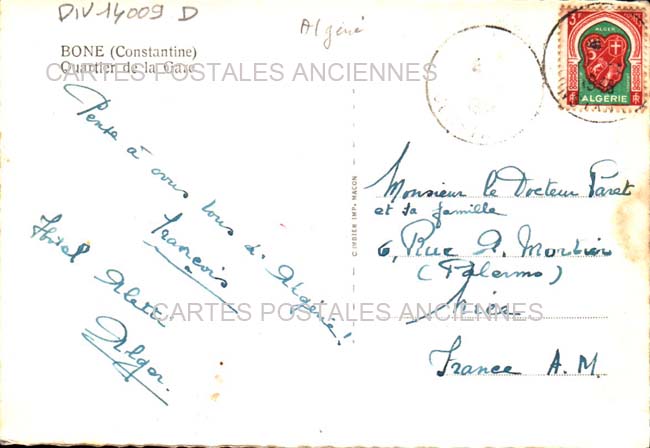 DIV-14009 D
Algérie
BONE (Constantine)
Quartier de la Gare
CARTES POSTALES ANCIENNES
Pense à vous tous d'Algérie!
François
Hôtel Aletti
Alger.
C. INDIER IMP. MACON
3F
ALGER
RF
ALGÉRIE
Monsieur le Docteur Paret
et sa famille
6, Rue A. Mortier
(Palermo)
CARTES POSTALES ANCIENNES
Nice
France A. M.